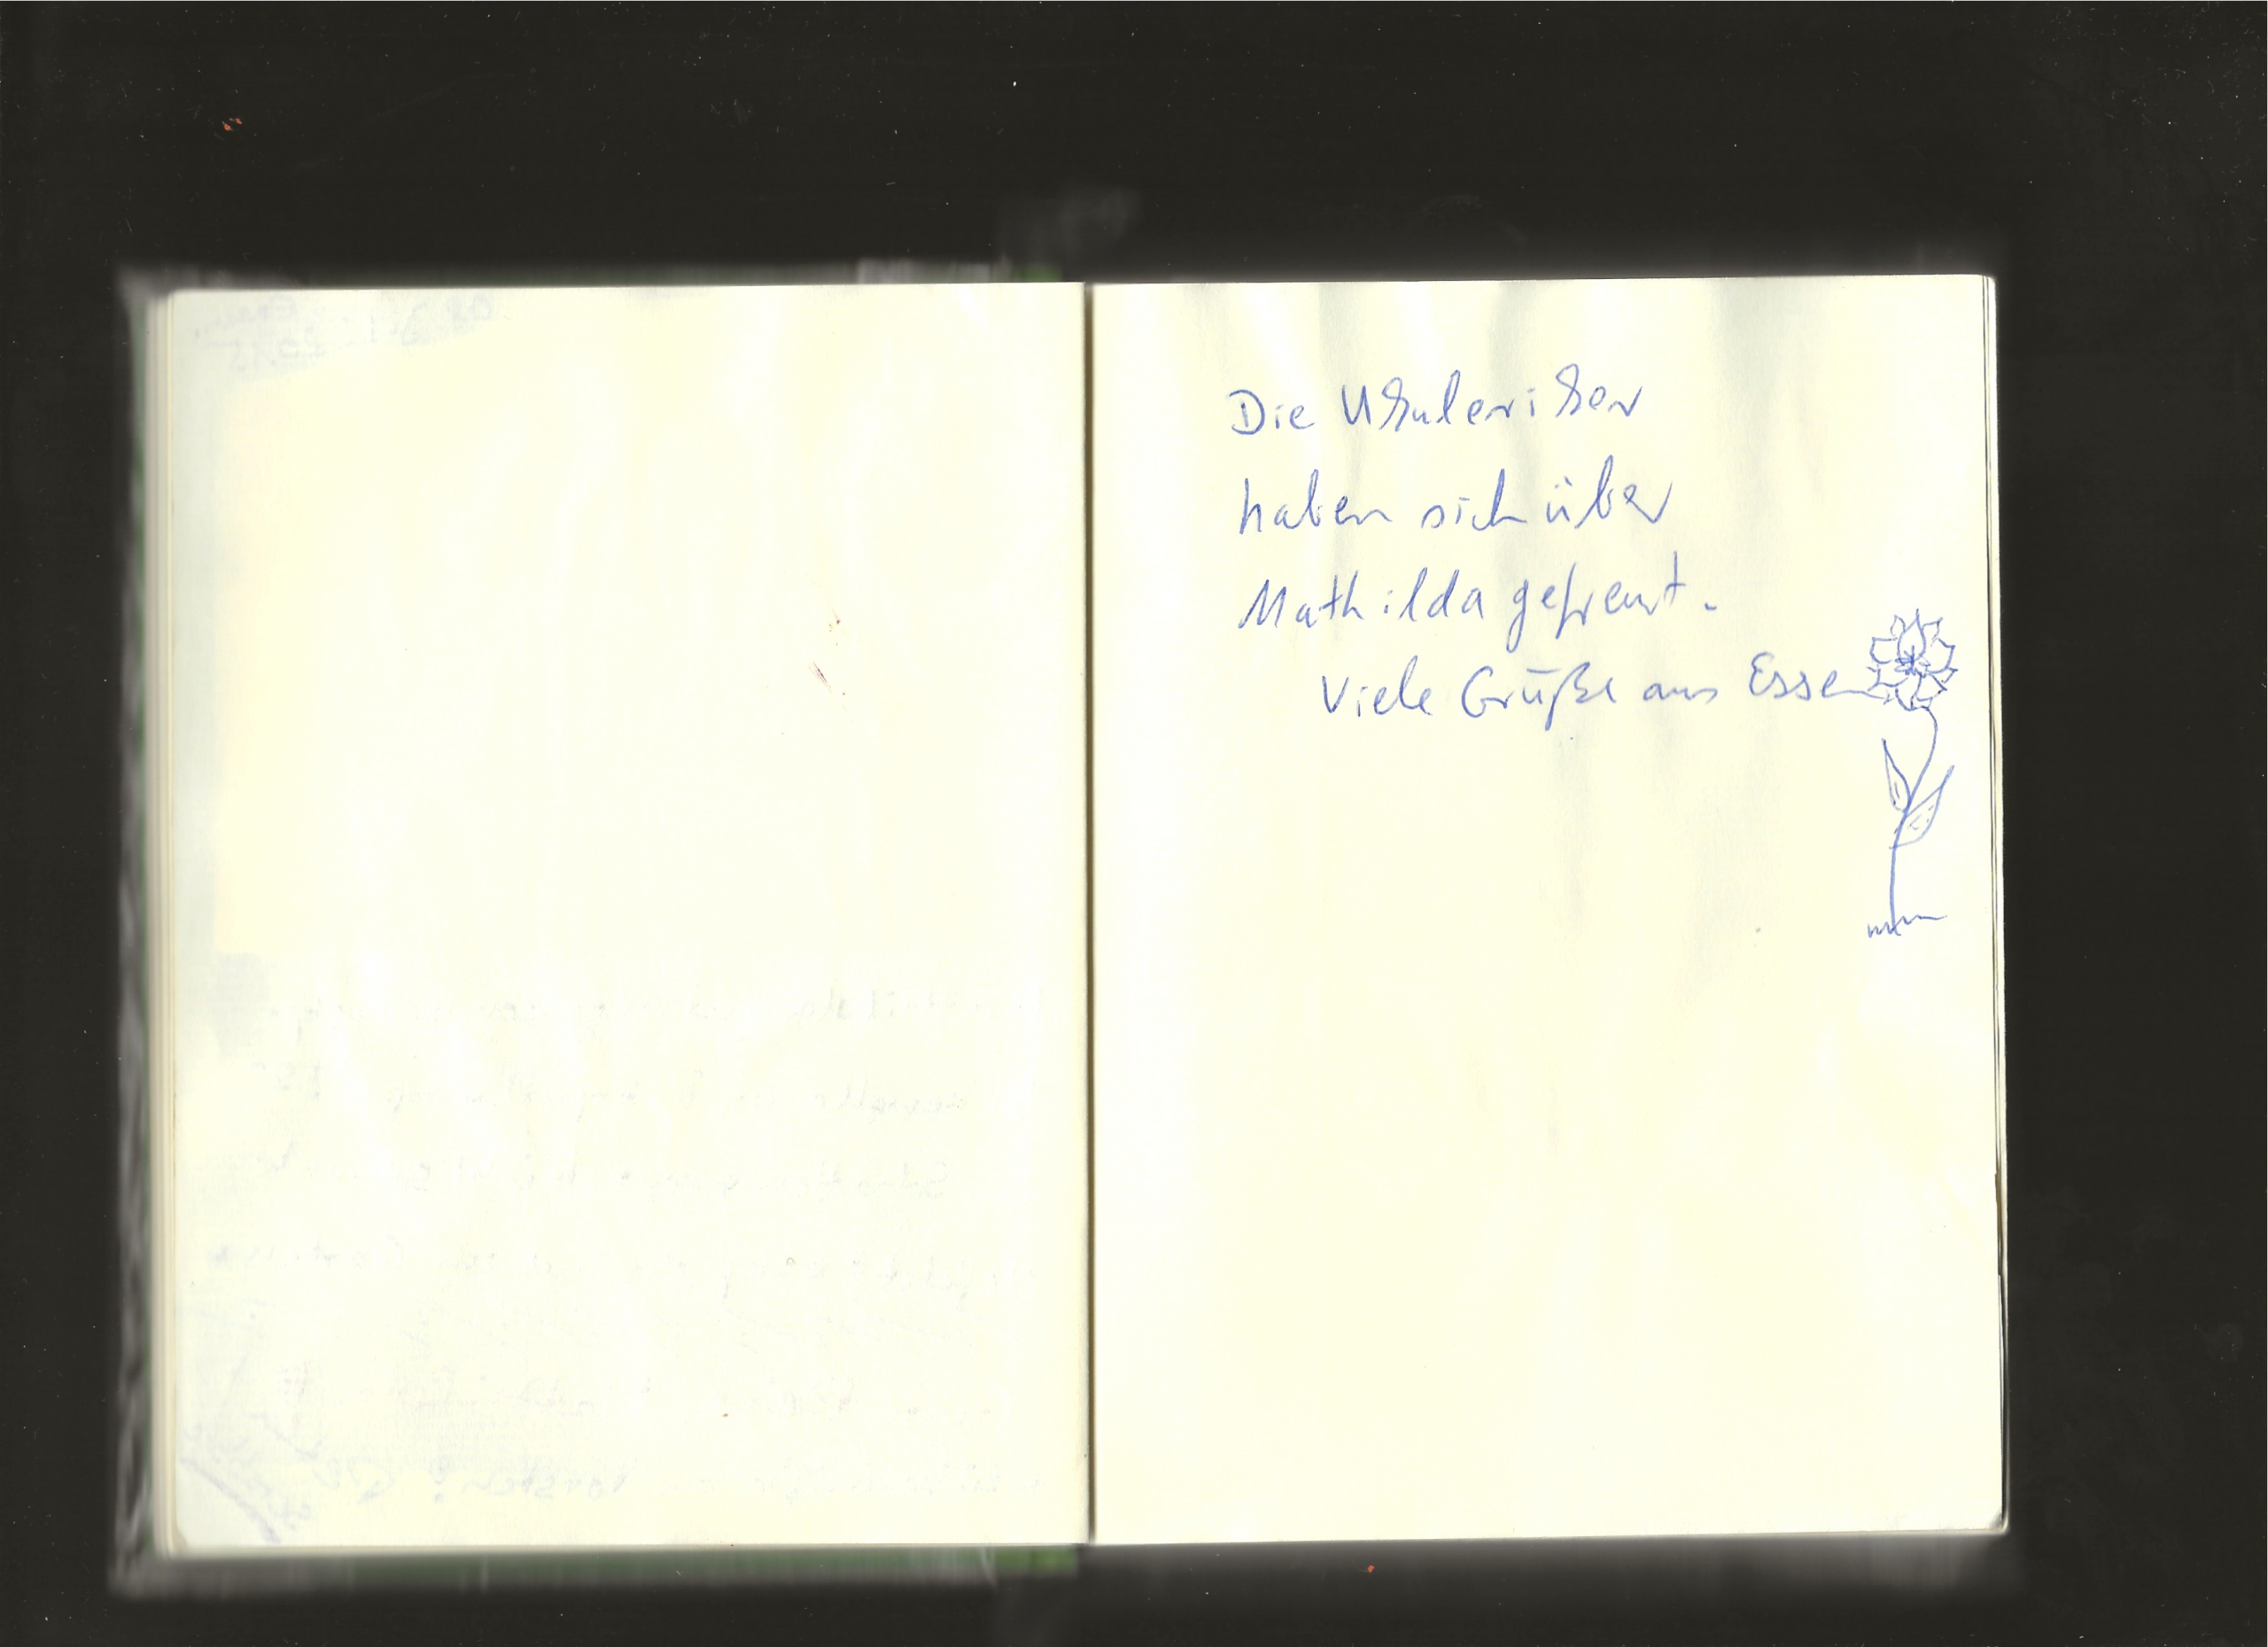 Die Ukuleriker
haben sich über
Mathilda gefreut.
Viele Grüße aus Essen